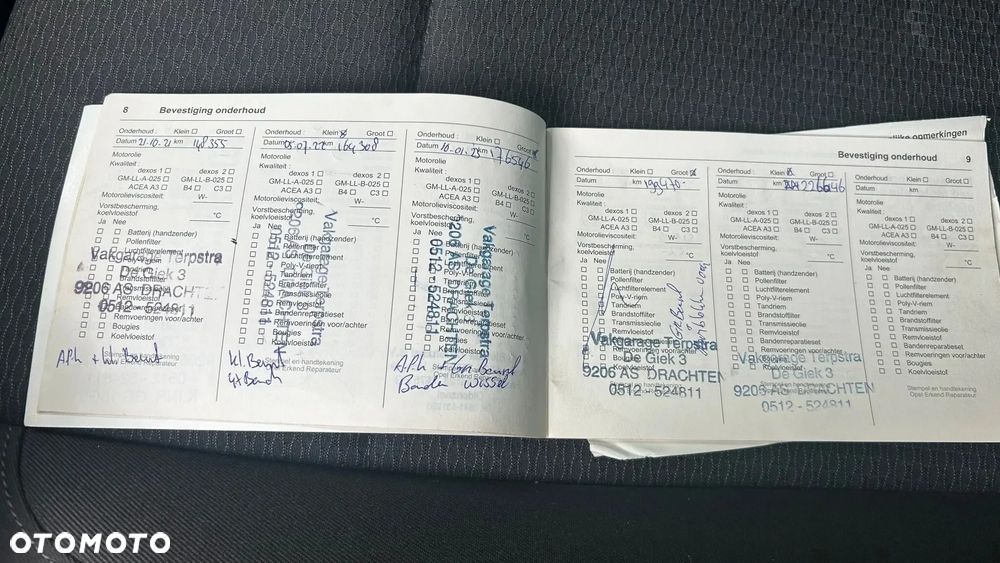 8 Bevestiging onderhoud
Onderhoud : Klein Groot
Datum 21-10-21 km 148355
Motorolie
Kwaliteit :
dexos 1 dexos 2
GM-LL-A-025 GM-LL-B-025
ACEA A3 B4 C3
Motorolieviscositeit: W-
Vorstbescherming,
koelvloeistof °C
Ja Nee
Batterij (handzender)
Pollenfilter
Luchtfilterelement
Vakgarage Terpstra
De Giek 3
9206 AS DRACHTEN
0512 - 524811
Remvoeringen voor/achter
Bougies
Koelvloeistof
APK +
Onderhoud : Klein Groot
Datum 05.07.22 km 164308
Motorolie
Kwaliteit :
dexos 1 dexos 2
GM-LL-A-025 GM-LL-B-025
ACEA A3 B4 C3
Motorolieviscositeit:
Vorstbescherming,
koelvloeistof °C
Ja Nee
Batterij (handzender)
Pollenfilter
Luchtfilterelement
Poly-V-riem
Tandriem
Brandstoffilter
Transmissieolie
Remvloeistof
Bandenreparatieset
Remvoeringen voor/achter
Bougies
Koelvloeistof
Vakgarage Terpstra
0512 - 524811
Kl. Beurt
4x Band
Stempel en handtekening
Opel Erkend Reparateur
Onderhoud : Klein Groot
Datum 10-01-23 km 176546
Motorolie
Kwaliteit :
dexos 1 dexos 2
GM-LL-A-025 GM-LL-B-025
ACEA A3 B4 C3
Motorolieviscositeit: W-
Vorstbescherming,
koelvloeistof °C
Ja Nee
Batterij (handzender)
Pollenfilter
Luchtfilterelement
Poly-V-riem
Vakgarage Terpstra
De Giek 3
9206 AS
0512 - 524811
APK + Gr. Beurt
Banden Wissel
opmerkingen
Bevestiging onderhoud 9
Onderhoud : Klein Groot
Datum km 199470-
Motorolie
Kwaliteit :
dexos 1 dexos 2
GM-LL-A-025 GM-LL-B-025
ACEA A3 B4 C3
Motorolieviscositeit: W-
Vorstbescherming,
koelvloeistof °C
Ja Nee
Batterij (handzender)
Pollenfilter
Luchtfilterelement
Poly-V-riem
Tandriem
Brandstoffilter
Transmissieolie
Remvloeistof
Gr. Beurt
Vakgarage Terpstra
De Giek 3
9206 AS DRACHTEN
0512 - 524811
Onderhoud : Klein Groot
Datum 226046
Motorolie
Kwaliteit :
dexos 1 dexos 2
GM-LL-A-025 GM-LL-B-025
ACEA A3 B4 C3
Motorolieviscositeit: W-
Vorstbescherming,
koelvloeistof °C
Ja Nee
Batterij (handzender)
Pollenfilter
Luchtfilterelement
Poly-V-riem
Tandriem
Brandstoffilter
Transmissieolie
Remvloeistof
Bandenreparatieset
Remvoeringen voor/achter
Vakgarage Terpstra
De Giek 3
9206 AS DRACHTEN
0512 - 524811
Onderhoud : Klein Groot
Datum km
Motorolie
Kwaliteit :
dexos 1 dexos 2
GM-LL-A-025 GM-LL-B-025
ACEA A3 B4 C3
Motorolieviscositeit: W-
Vorstbescherming,
koelvloeistof °C
Ja Nee
Batterij (handzender)
Pollenfilter
Luchtfilterelement
Poly-V-riem
Tandriem
Brandstoffilter
Transmissieolie
Remvloeistof
Bandenreparatieset
Remvoeringen voor/achter
Bougies
Koelvloeistof
Stempel en handtekening
Opel Erkend Reparateur
OTOMOTO